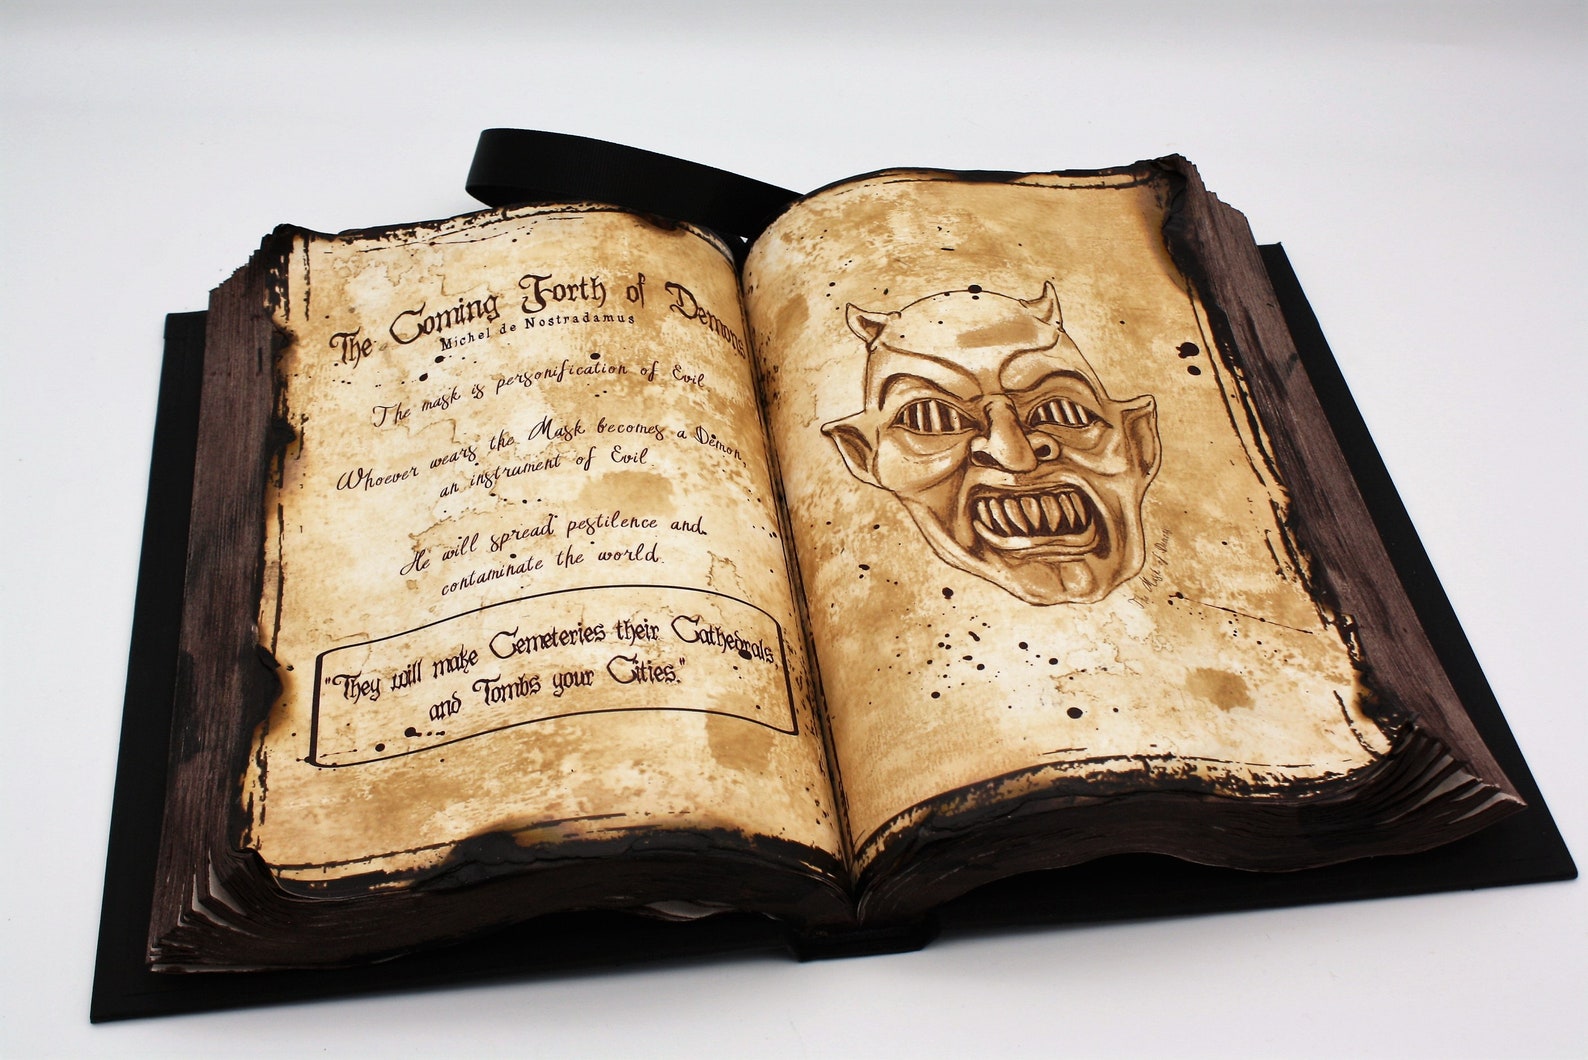 The Coming Forth of Demons
Michel de Nostradamus
The mask is personification of Evil
Whoever wears the Mask becomes a Demon,
an instrument of Evil
He will spread pestilence and
contaminate the world.
"They will make Cemeteries their Cathedrals,
and Tombs your Cities."
The Mask of